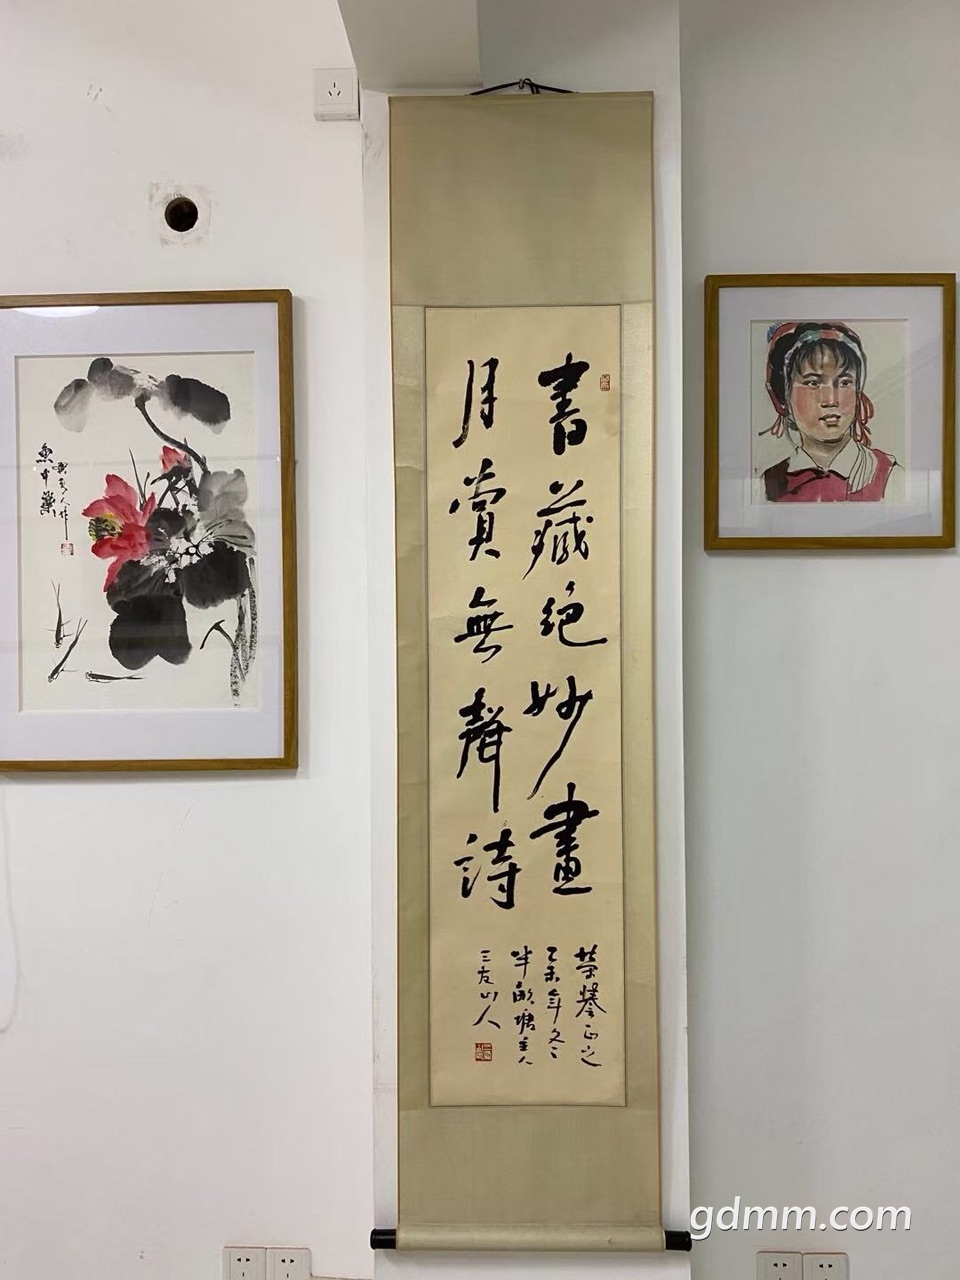 書藏绝妙畫
月賞無聲詩
榮馨正之
乙未年冬
半畝塘主人
三友山人
gdmm.com